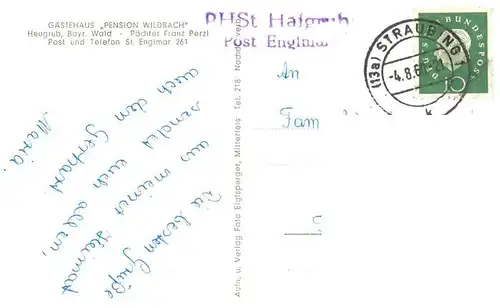 GÄSTEHAUS „PENSION WILDBACH"
Heugrub, Bayr. Wald - Pächter Franz Perzl
Post und Telefon St. Englmar 261
PHSt Haigrub
Post Englmar
(13a) STRAUBING
-4.8.6
k
DEUTSCHE BUNDESPOST
10
An
Fam
Die besten Grüße
aus meiner Heimat
sendet euch allen,
auch dem Gerhard
Maria.
Aufn. u. Verlag Foto Eiglsperger, Mitterfels - Tel. 218